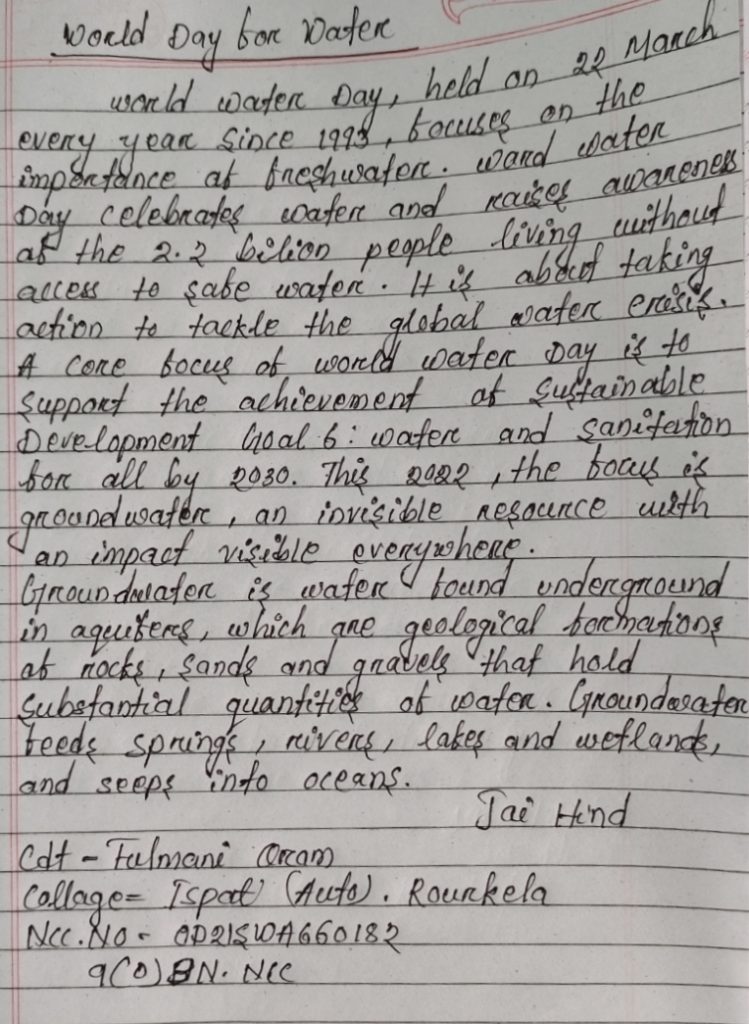 World Day for Water
world water Day, held on 22 March
every year since 1993, focuses on the
importance of freshwater. ward water
Day celebrates water and raises awareness
of the 2.2 bilion people living without
access to safe water. It is about taking
action to tackle the global water crisis.
A core focus of world water Day is to
support the achievement of Sustainable
Development Goal 6: water and sanitation
for all by 2030. This 2022, the focus is
groundwater, an invisible resource with
an impact visible everywhere.
Groundwater is water found underground
in aquifers, which are geological formations
of rocks, sands and gravels that hold
substantial quantities of water. Groundwater
feeds springs, rivers, lakes and wetlands,
and seeps into oceans.
Jai Hind
Cdt - Fulmani Oram
Collage = Ispat (Auto). Rourkela
Ncc. No - OD21SWA660182
9(O) BN. NCC